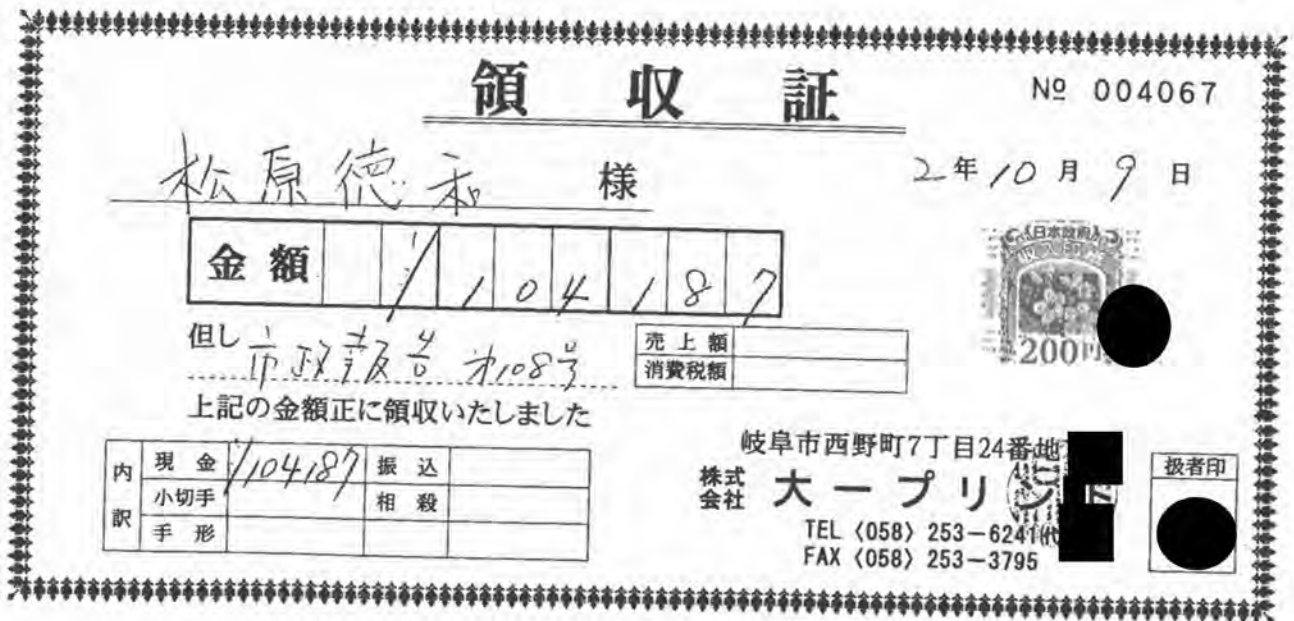 領収証
№ 004067
松原徳和 様
2年10月9日
金額 ¥104187
但し 市政報告 才108号
売上額
消費税額
上記の金額正に領収いたしました
日本政府
収入印紙
200円
内訳
現金 ¥104187 振込
小切手 相殺
手形
岐阜市西野町7丁目24番地
株式会社 大一プリント
TEL〈058〉253-6241㈹
FAX〈058〉253-3795
扱者印